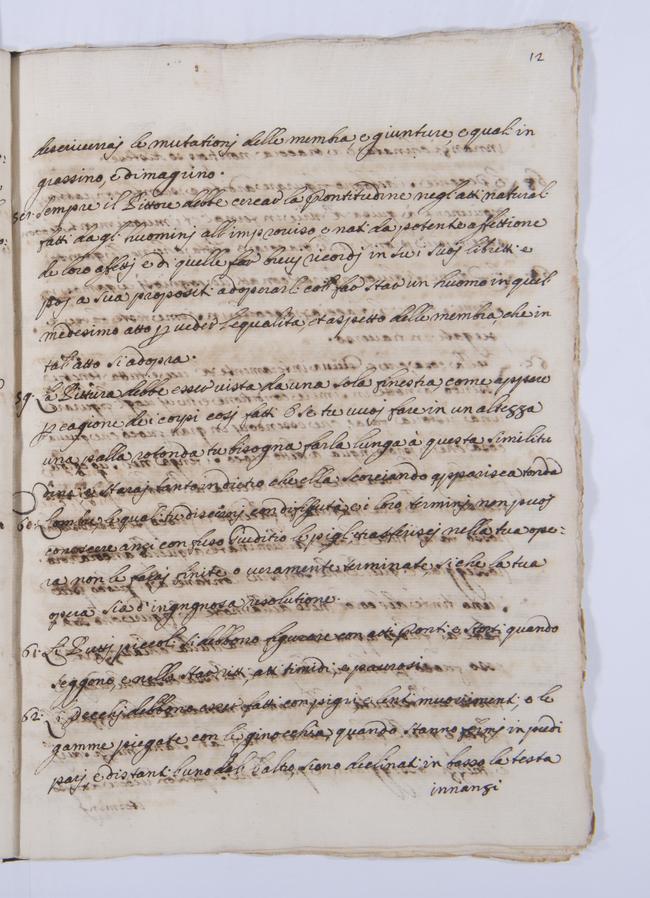 12
descriverraj le mutationj delle membra e giunture e quali in
grassino, ò dimagrino.
58. Sempre il Pittore debbe cercar la prontitudine negl'atti naturali
fatti da gl'huominj all'improviso e nati da potente affettione
de loro affetti e di quelle far brevj ricordj in su i suoj libretti e
poj a sua propositi adoperarli col far star un huomo in quel
medesimo atto p veder l'equalita et aspetto delle membra, che in
tal atto si adopra.
59. La Pittura debbe esser vista da una sola finestra come appare
p cagione de i corpi cosj fatti e se tu vuoj fare in un altezza
una palla rotonda tu bisogna farla lunga à questa similitu
dine e staraj tanto indietro che ella scorciando apparisca tonda
60. L'ombre le quali tu discernj con difficultà e i loro terminj non puoj
conoscere anzi con fuso Giuditio le piglj e trasferiscj nella tua ope-
ra non le farai finite o veramente terminate, si che la tua
opera sia d'ingegnosa resolutione.
61. Li Putti piccoli si debbono figurare con atti pronti e storti quando
seggono e nello star ritti atti timidi, e paurosi
62. I vecchj debbono esser fatti con pigri e lenti muovimenti, e le
gamme piegate con le ginocchia, quando stanno fermj in piedi
parj e distanti l'uno dall'altro, siano declinati in basso la testa
innanzi